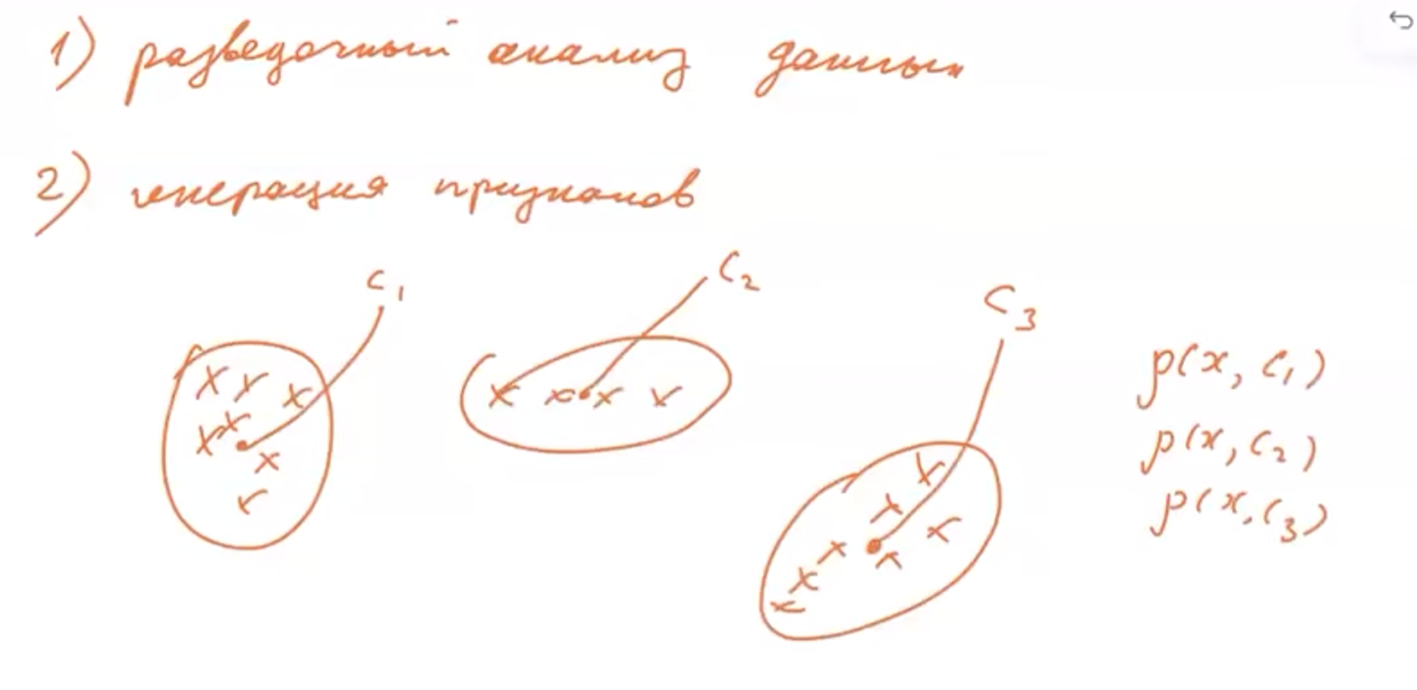 1) разведочный анализ данных
2) генерация признаков
c₁
c₂
c₃
ρ(x, c₁)
ρ(x, c₂)
ρ(x, c₃)